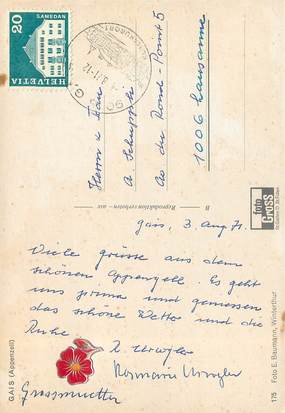 20
SAMEDAN
HELVETIA
9056 GAIS
Herrn + Frau
A. Schupple
Av du Rond-Point 5
1006 Lausanne
B Reproduktion verboten
foto
Gross
Gais, 3. Aug 71.
Viele Grüsse aus dem
schönen Appenzell. Es geht
uns prima und geniessen
das schöne Wetter und die
Ruhe.
Rosmarie
Grossmutter
GAIS (Appenzell)
175 Foto E. Baumann, Winterthur